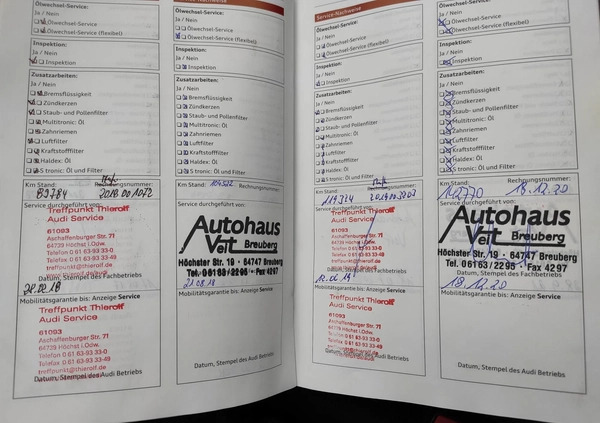 Ölwechsel-Service:
Ja / Nein
Ölwechsel-Service
Ölwechsel-Service (flexibel)
Inspektion:
Ja / Nein
Inspektion
Zusatzarbeiten:
Ja / Nein
Bremsflüssigkeit
Zündkerzen
Staub- und Pollenfilter
Multitronic: Öl
Zahnriemen
Luftfilter
Kraftstofffilter
Haldex: Öl
S tronic: Öl und Filter
Km Stand: 89784
Rechnungsnummer:
Service durchgeführt von:
Treffpunkt Thierolf
Audi Service
61093
Aschaffenburger Str. 71
64739 Höchst i. Odw.
Telefon 0 61 63-93 33-0
Telefax 0 61 63-93 33-49
treffpunkt@thierolf.de
Datum, Stempel des Fachbetriebs
Mobilitätsgarantie bis: Anzeige Service
Treffpunkt Thierolf
Audi Service
61093
Aschaffenburger Str. 71
64739 Höchst i. Odw.
Telefon 0 61 63-93 33-0
Telefax 0 61 63-93 33-49
treffpunkt@thierolf.de
Datum, Stempel des Audi Betriebs
Ja / Nein
Ölwechsel-Service
Ölwechsel-Service (flexibel)
Inspektion:
Ja / Nein
Inspektion
Zusatzarbeiten:
Ja / Nein
Bremsflüssigkeit
Zündkerzen
Staub- und Pollenfilter
Multitronic: Öl
Zahnriemen
Luftfilter
Kraftstofffilter
Haldex: Öl
S tronic: Öl und Filter
Km Stand:
Rechnungsnummer:
Service durchgeführt von:
Autohaus
Veit Breuberg
Höchster Str. 19 · 64747 Breuberg
Tel. 06163/2295 · Fax 4297
Datum, Stempel des Fachbetriebs
21.08.18
Mobilitätsgarantie bis: Anzeige Service
Datum, Stempel des Audi Betriebs
Service-Nachweise
Ölwechsel-Service:
Ja / Nein
Ölwechsel-Service
Ölwechsel-Service (flexibel)
Inspektion:
Ja / Nein
Inspektion
Zusatzarbeiten:
Ja / Nein
Bremsflüssigkeit
Zündkerzen
Staub- und Pollenfilter
Multitronic: Öl
Zahnriemen
Luftfilter
Kraftstofffilter
Haldex: Öl
S tronic: Öl und Filter
Km Stand:
Rechnungsnummer:
Service durchgeführt von:
Treffpunkt Thierolf
Audi Service
61093
Aschaffenburger Str. 71
Datum, Stempel des Fachbetriebs
Mobilitätsgarantie bis: Anzeige Service
Treffpunkt Thierolf
Audi Service
61093
Aschaffenburger Str. 71
64739 Höchst i. Odw.
Telefon 0 61 63-93 33-0
Telefax 0 61 63-93 33-49
treffpunkt@thierolf.de
Datum, Stempel des Audi Betriebs
Ölwechsel-Service:
Ja / Nein
Ölwechsel-Service
Ölwechsel-Service (flexibel)
Inspektion:
Ja / Nein
Inspektion
Zusatzarbeiten:
Ja / Nein
Bremsflüssigkeit
Zündkerzen
Staub- und Pollenfilter
Multitronic: Öl
Zahnriemen
Luftfilter
Kraftstofffilter
Haldex: Öl
S tronic: Öl und Filter
Km Stand:
Rechnungsnummer:
18.12.20
Service durchgeführt von:
Autohaus
Veit Breuberg
Höchster Str. 19 · 64747 Breuberg
Tel. 06163/2295 · Fax 4297
Datum, Stempel des Fachbetriebs
18.12.20
Mobilitätsgarantie bis: Anzeige Service
Datum, Stempel des Audi Betriebs